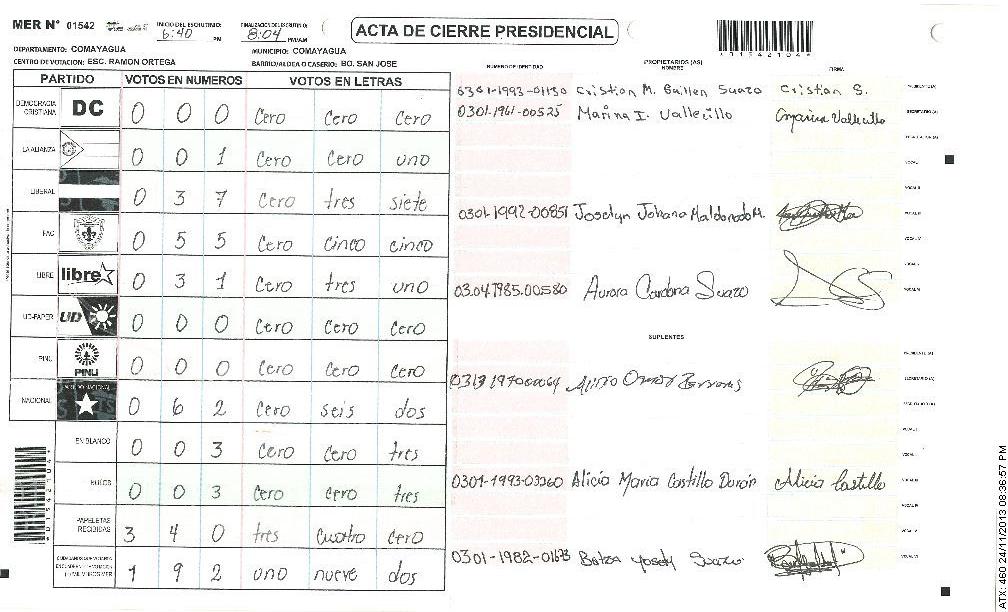 MER N° 01542 INICIO DEL ESCRUTINIO: 6:40 PM FINALIZACION DEL ESCRUTINIO: 8:04 PM/AM
ACTA DE CIERRE PRESIDENCIAL
DEPARTAMENTO: COMAYAGUA MUNICIPIO: COMAYAGUA
CENTRO DE VOTACION: ESC. RAMON ORTEGA BARRIO/ALDEA O CASERIO: BO. SAN JOSE
PARTIDO VOTOS EN NUMEROS VOTOS EN LETRAS
DEMOCRACIA CRISTIANA DC 0 0 0 Cero Cero Cero
LA ALIANZA 0 0 1 Cero Cero uno
LIBERAL 0 3 7 Cero tres siete
PAC 0 5 5 Cero Cinco cinco
LIBRE libre 0 3 1 Cero tres uno
UD-FAPER UD 0 0 0 Cero Cero Cero
PINU PINU 0 0 0 Cero Cero Cero
NACIONAL PARTIDO NACIONAL 0 6 2 Cero seis dos
EN BLANCO 0 0 3 Cero Cero tres
NULOS 0 0 3 Cero cero tres
PAPELETAS RECIBIDAS 3 4 0 tres cuatro cero
1 9 2 uno nueve dos
NUMERO DE IDENTIDAD PROPIETARIOS (AS) NOMBRE FIRMA
0301-1993-01130 Cristian M. Guillen Suazo Cristian S. PRESIDENTE (A)
0301-1961-00525 Marina I. Vallecillo Marina Vallecillo SECRETARIO (A)
0301-1992-00851 Joselyn Johana Maldonado M.
03.04.1985.00580 Aurora Cardona Suazo
SUPLENTES
PRESIDENTE (A)
SECRETARIO (A)
0301-1993-03260 Alicia Maria Castillo Durón Alicia Castillo
0301-1982-01673 Suazo
ATX: 460 24/11/2013 08:36:57 PM